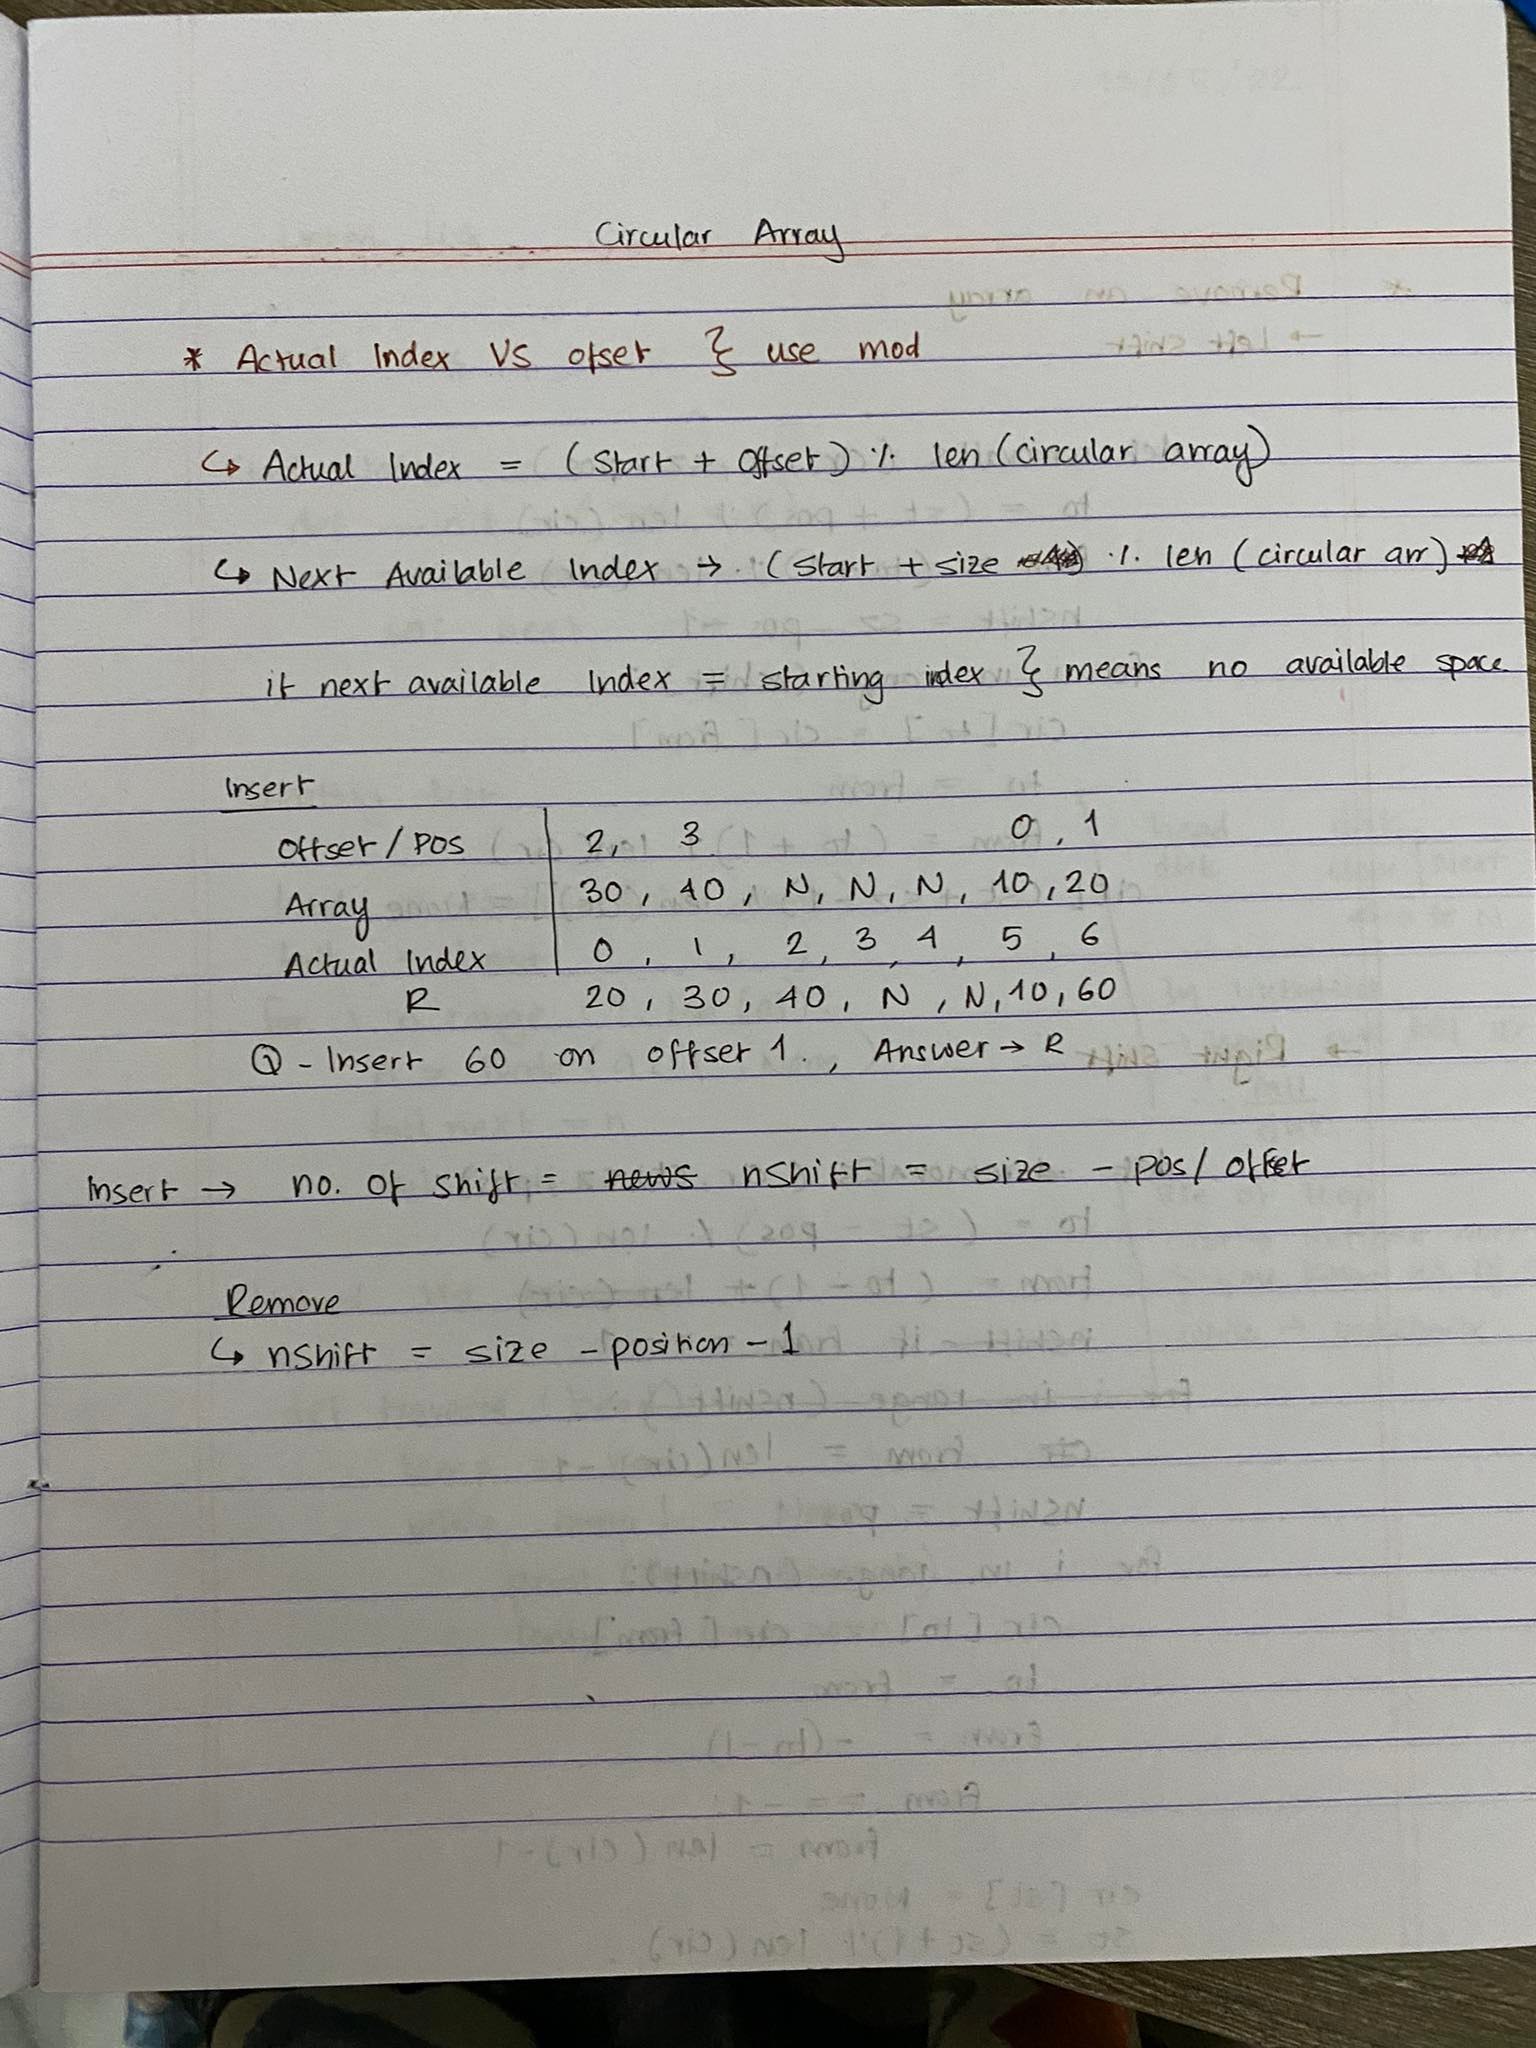 Circular Array
* Actual Index VS ofset } use mod
↳ Actual Index = (start + offset) % len (circular array)
↳ Next Available Index → (start + size % len (circular arr)
if next available Index = starting index } means no available space
Insert
Offset / pos 2, 3 0, 1
Array 30, 40, N, N, N, 10, 20
Actual Index 0, 1, 2, 3, 4, 5, 6
R 20, 30, 40, N, N, 10, 60
Q - Insert 60 on offset 1. , Answer → R
Insert → no. of shift = news nshift = size - pos/ offset
Remove
↳ nshift = size - position - 1